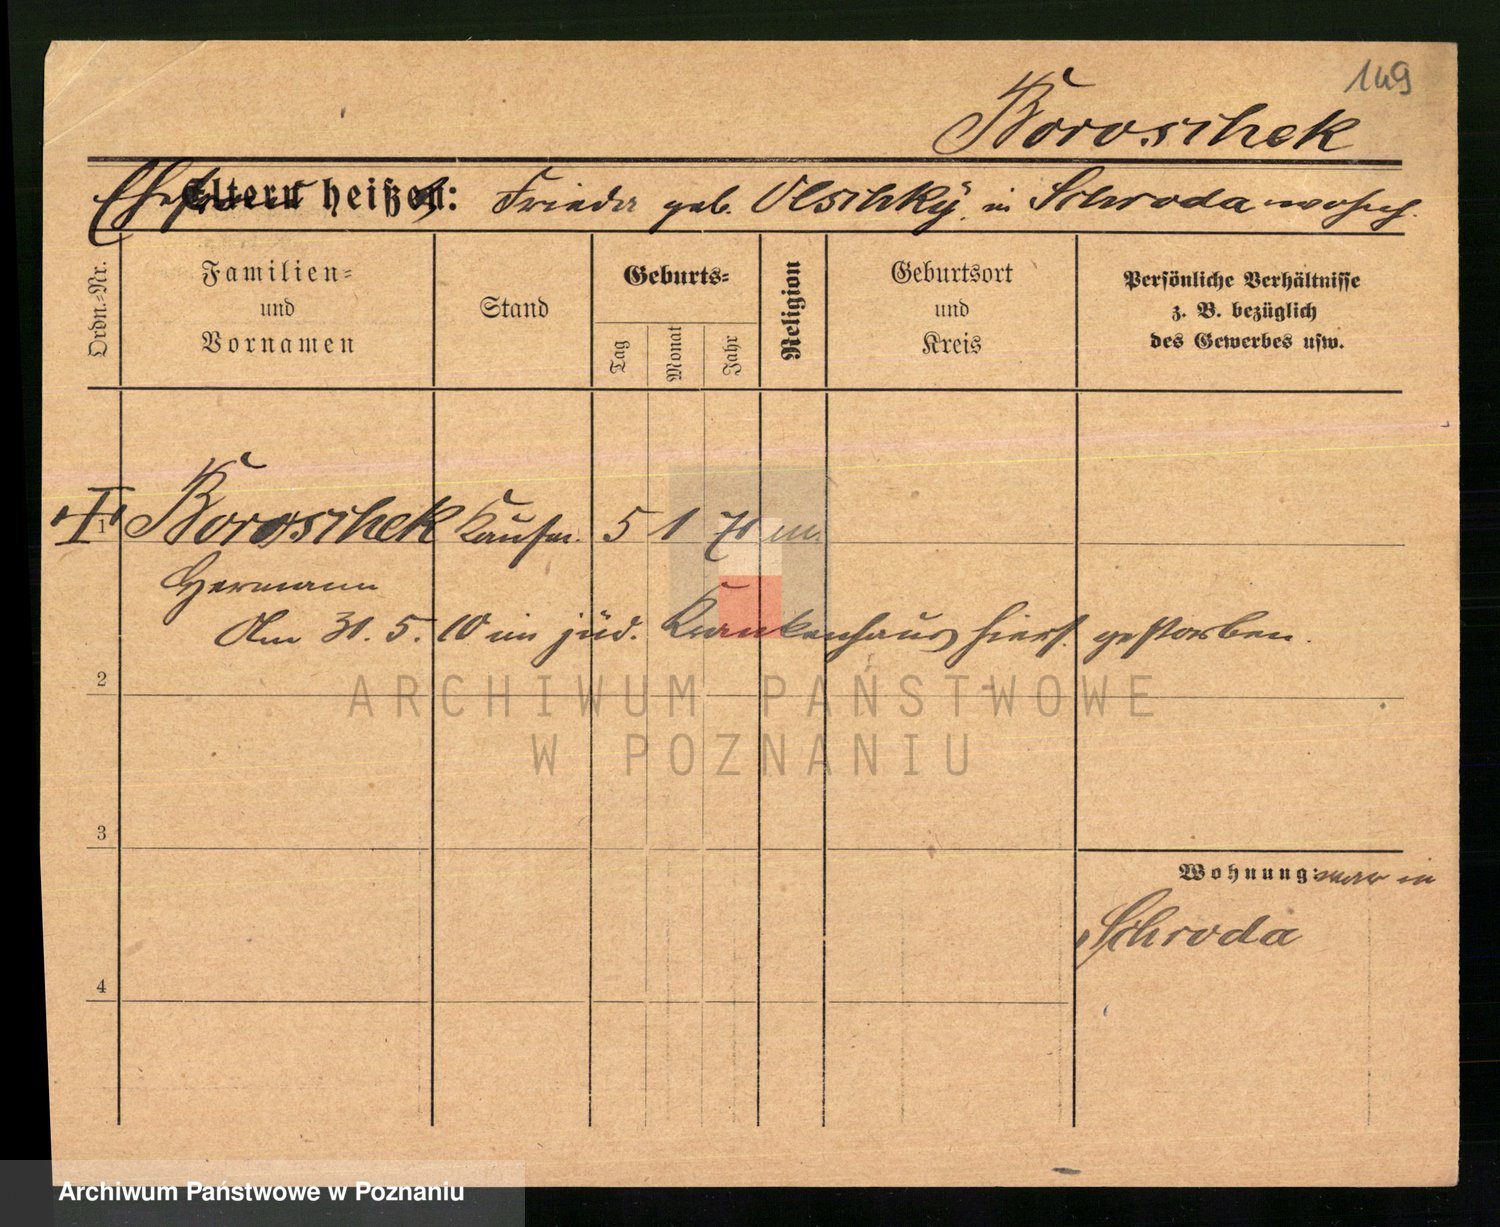 149
Boroschek
Ehefrau heißt: Frieda geb. Olschky, in Schroda wohnh.
Ordn.-Nr.
Familien=
und
Vornamen
Stand
Geburts=
Tag
Monat
Jahr
Religion
Geburtsort
und
Kreis
Persönliche Verhältnisse
z. B. bezüglich
des Gewerbes usw.
1 Boroschek Kaufm. 5 1 71 m.
Hermann
Am 31. 5. 10 im jüd. Krankenhaus hiers. gestorben.
2
ARCHIWUM PAŃSTWOWE
W POZNANIU
3
Wohnung: war in
Schroda
4
Archiwum Państwowe w Poznaniu